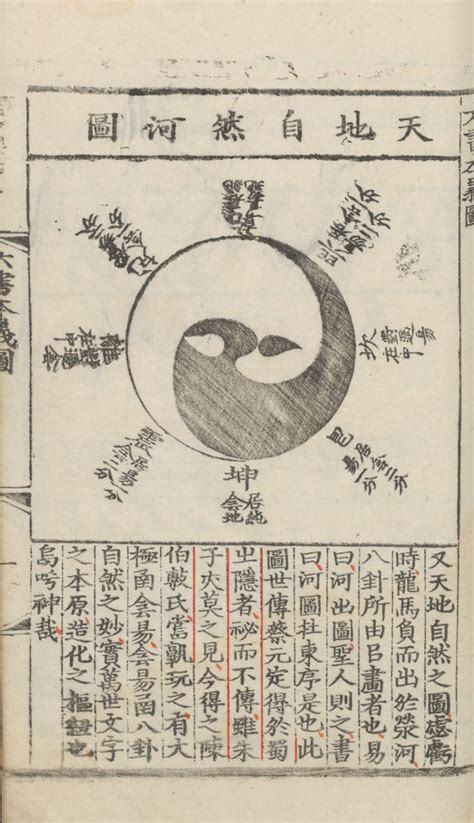 天地自然河圖
六書本義圖
坎
對過昜
在中
離
對過侌
在中
震
坤
居純
侌地
又天地自然之圖虙戲
時龍馬負而出於滎河
八卦所由㠯畫者也易
曰河出圖聖人則之書
曰河圖在東序是也此
圖世傳蔡元定得於蜀
出隱者祕而不傳雖朱
子夾莫之見今得之陳
伯敷氏嘗翫玩之有大
極函侌昜侌昜函八卦
自然之妙實萬世文字
之本原造化之樞紐也
烏呼神哉